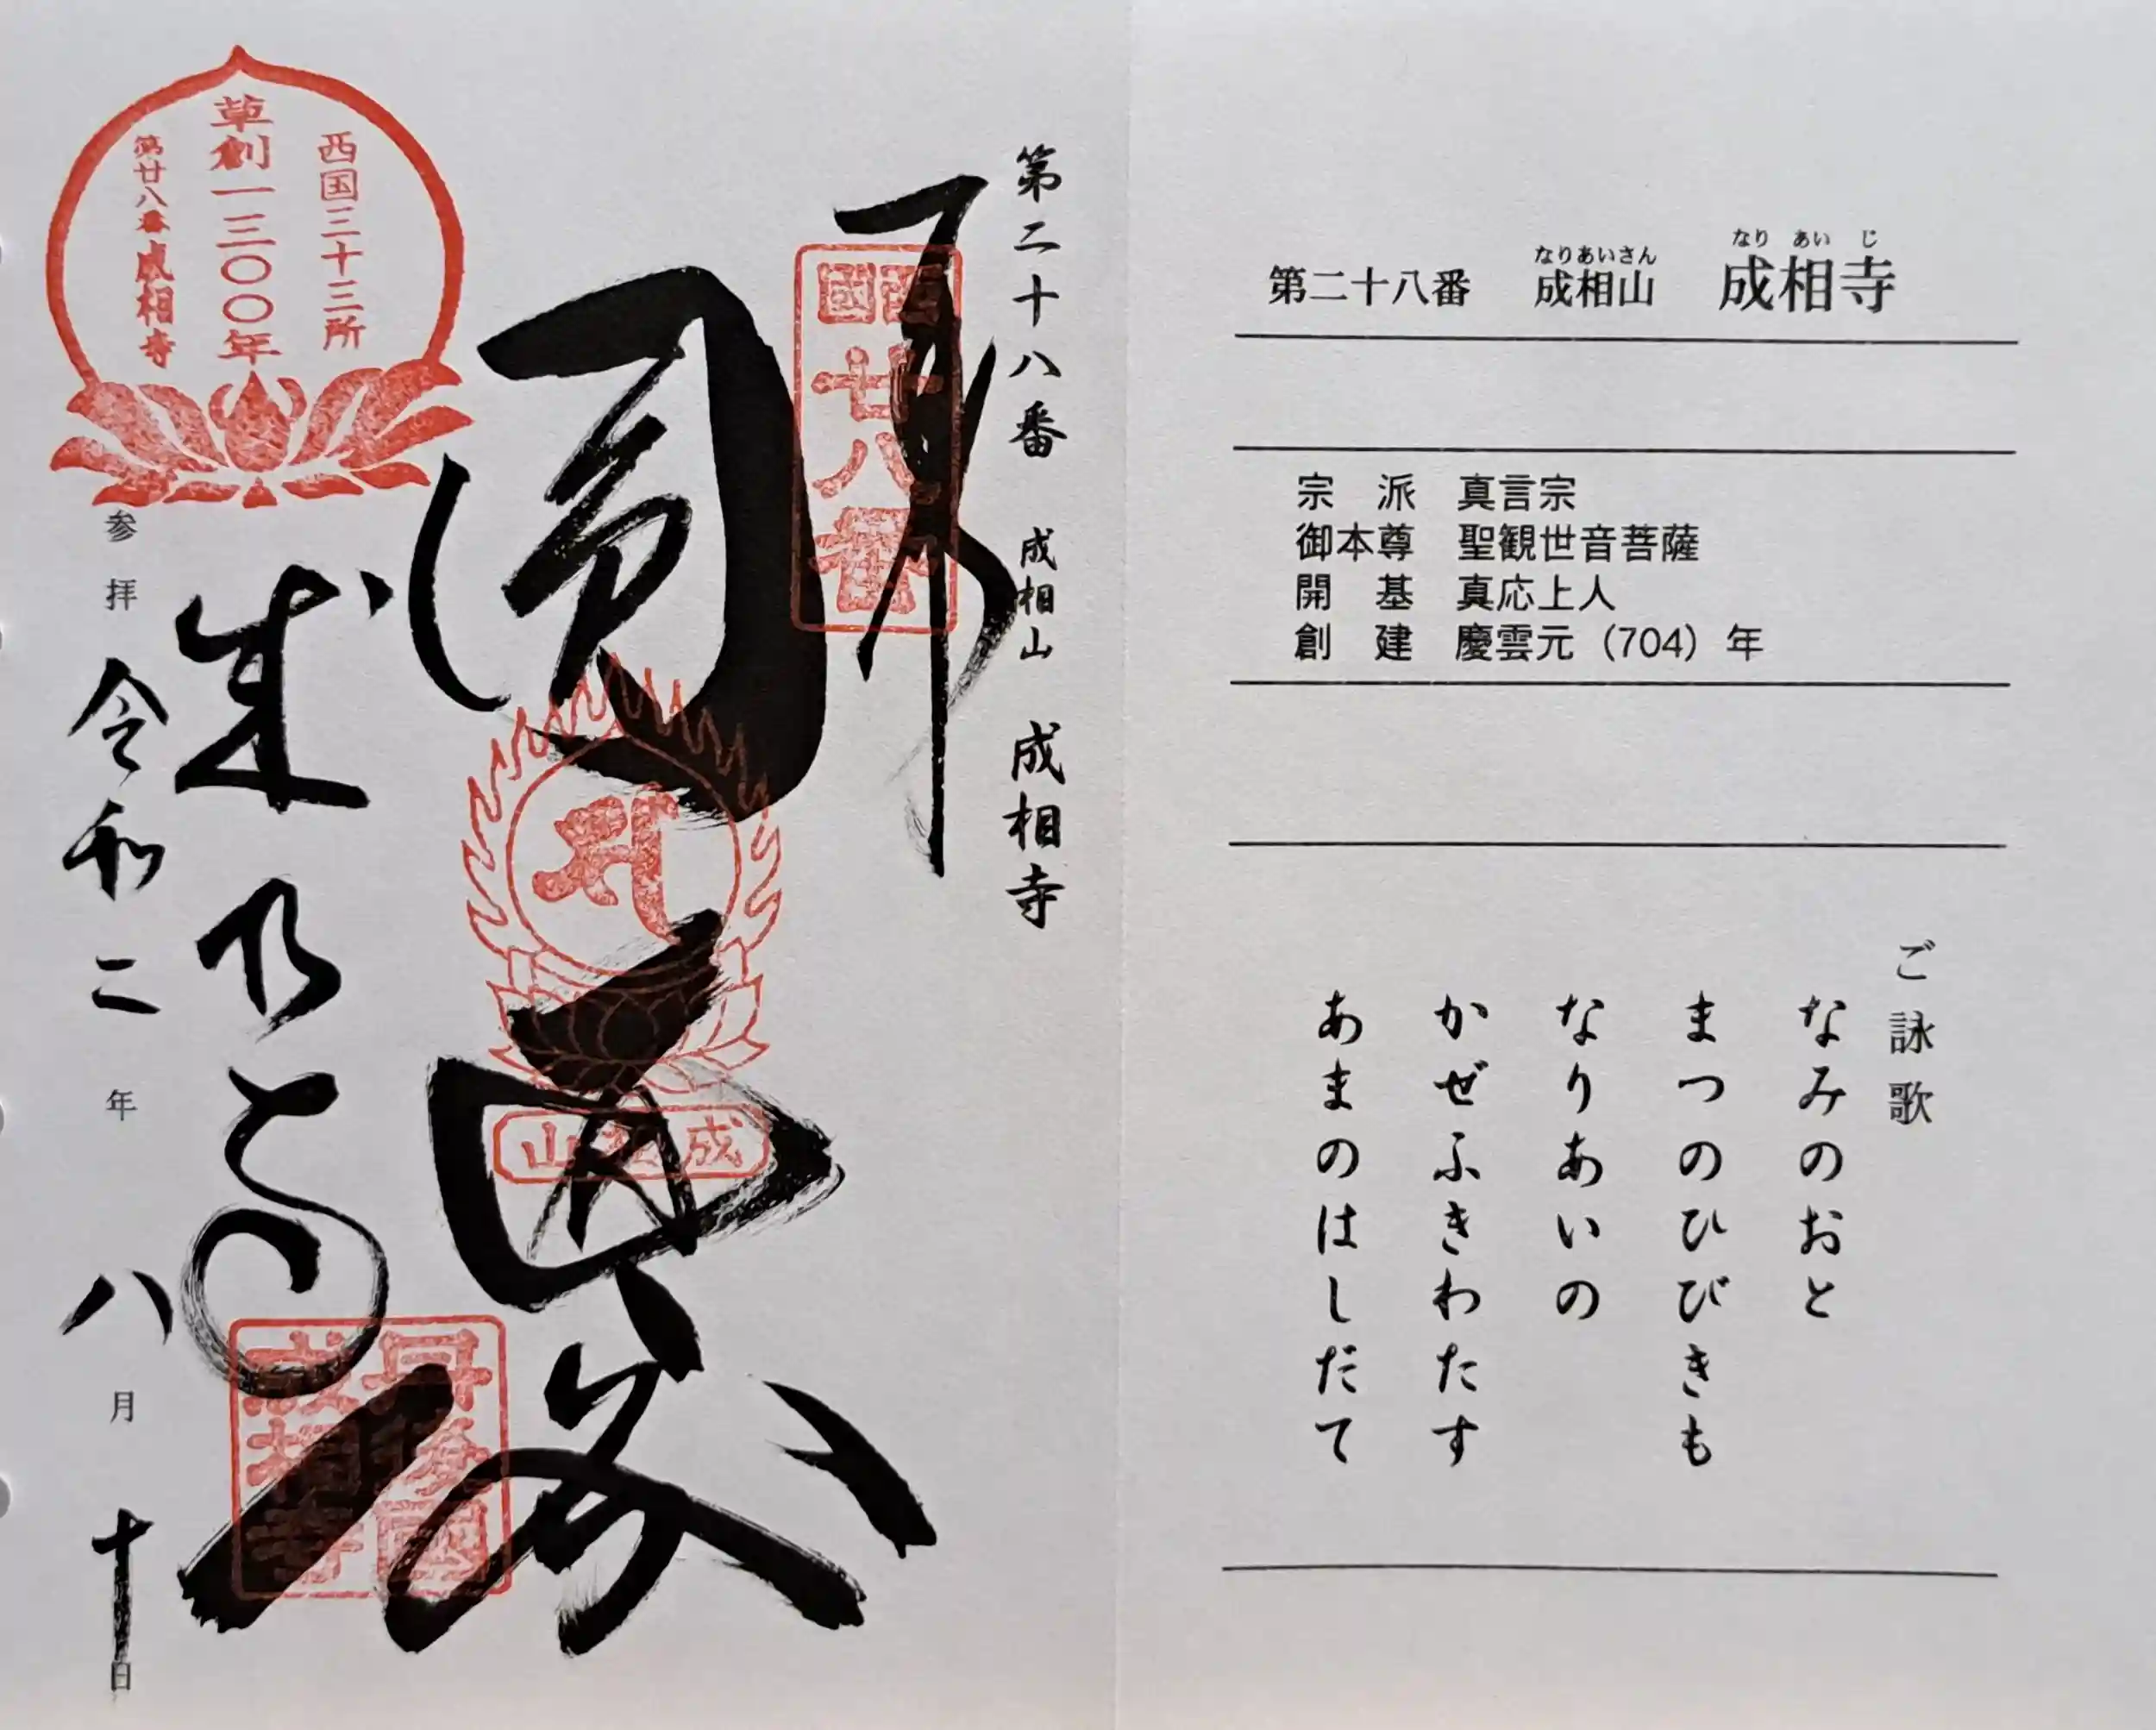 なりあいさん
なりあいじ
第二十八番 成相山 成相寺
宗派 真言宗
御本尊 聖観世音菩薩
開基 真応上人
創建 慶雲元（704）年
ご詠歌
なみのおと
まつのひびきも
なりあいの
かぜふきわたす
あまのはしだて
第二十八番 成相山 成相寺
西國
廿八番
成相山
丹後國
成相寺
西国三十三所
草創一三〇〇年
第廿八番 成相寺
参拝 令和二年八月十日